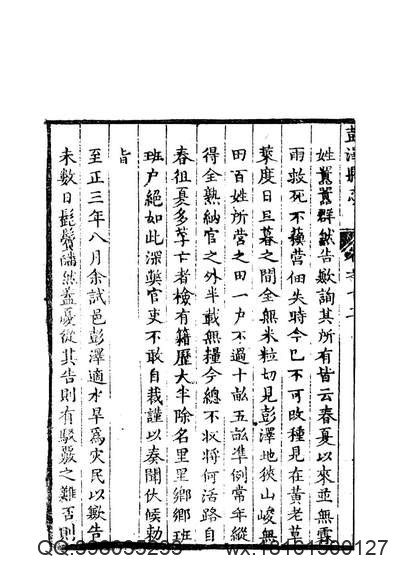 彭澤縣志
姓囂囂群然告歉詢其所有皆云春夏以來並無霖
雨救死不蘓營佃失時今已不可改種見在黃老草
萊度日旦暮之間全無米粒切見彭澤地狹山峻無
田百姓所營之田一户不過十畝五畝準例常年縱
得全熟納官之外半載無糧今總不收將何活路自
春徂夏多莩亡者檢有籍歷大半除名里里鄉鄉班
班户絕如此深獘官吏不敢自裁謹以奏聞伏候勅
旨
至正三年八月余試邑彭澤適水旱爲災民以歉告
未數日髭鬢皤然蓋憂從其告則有駁覈之難否則